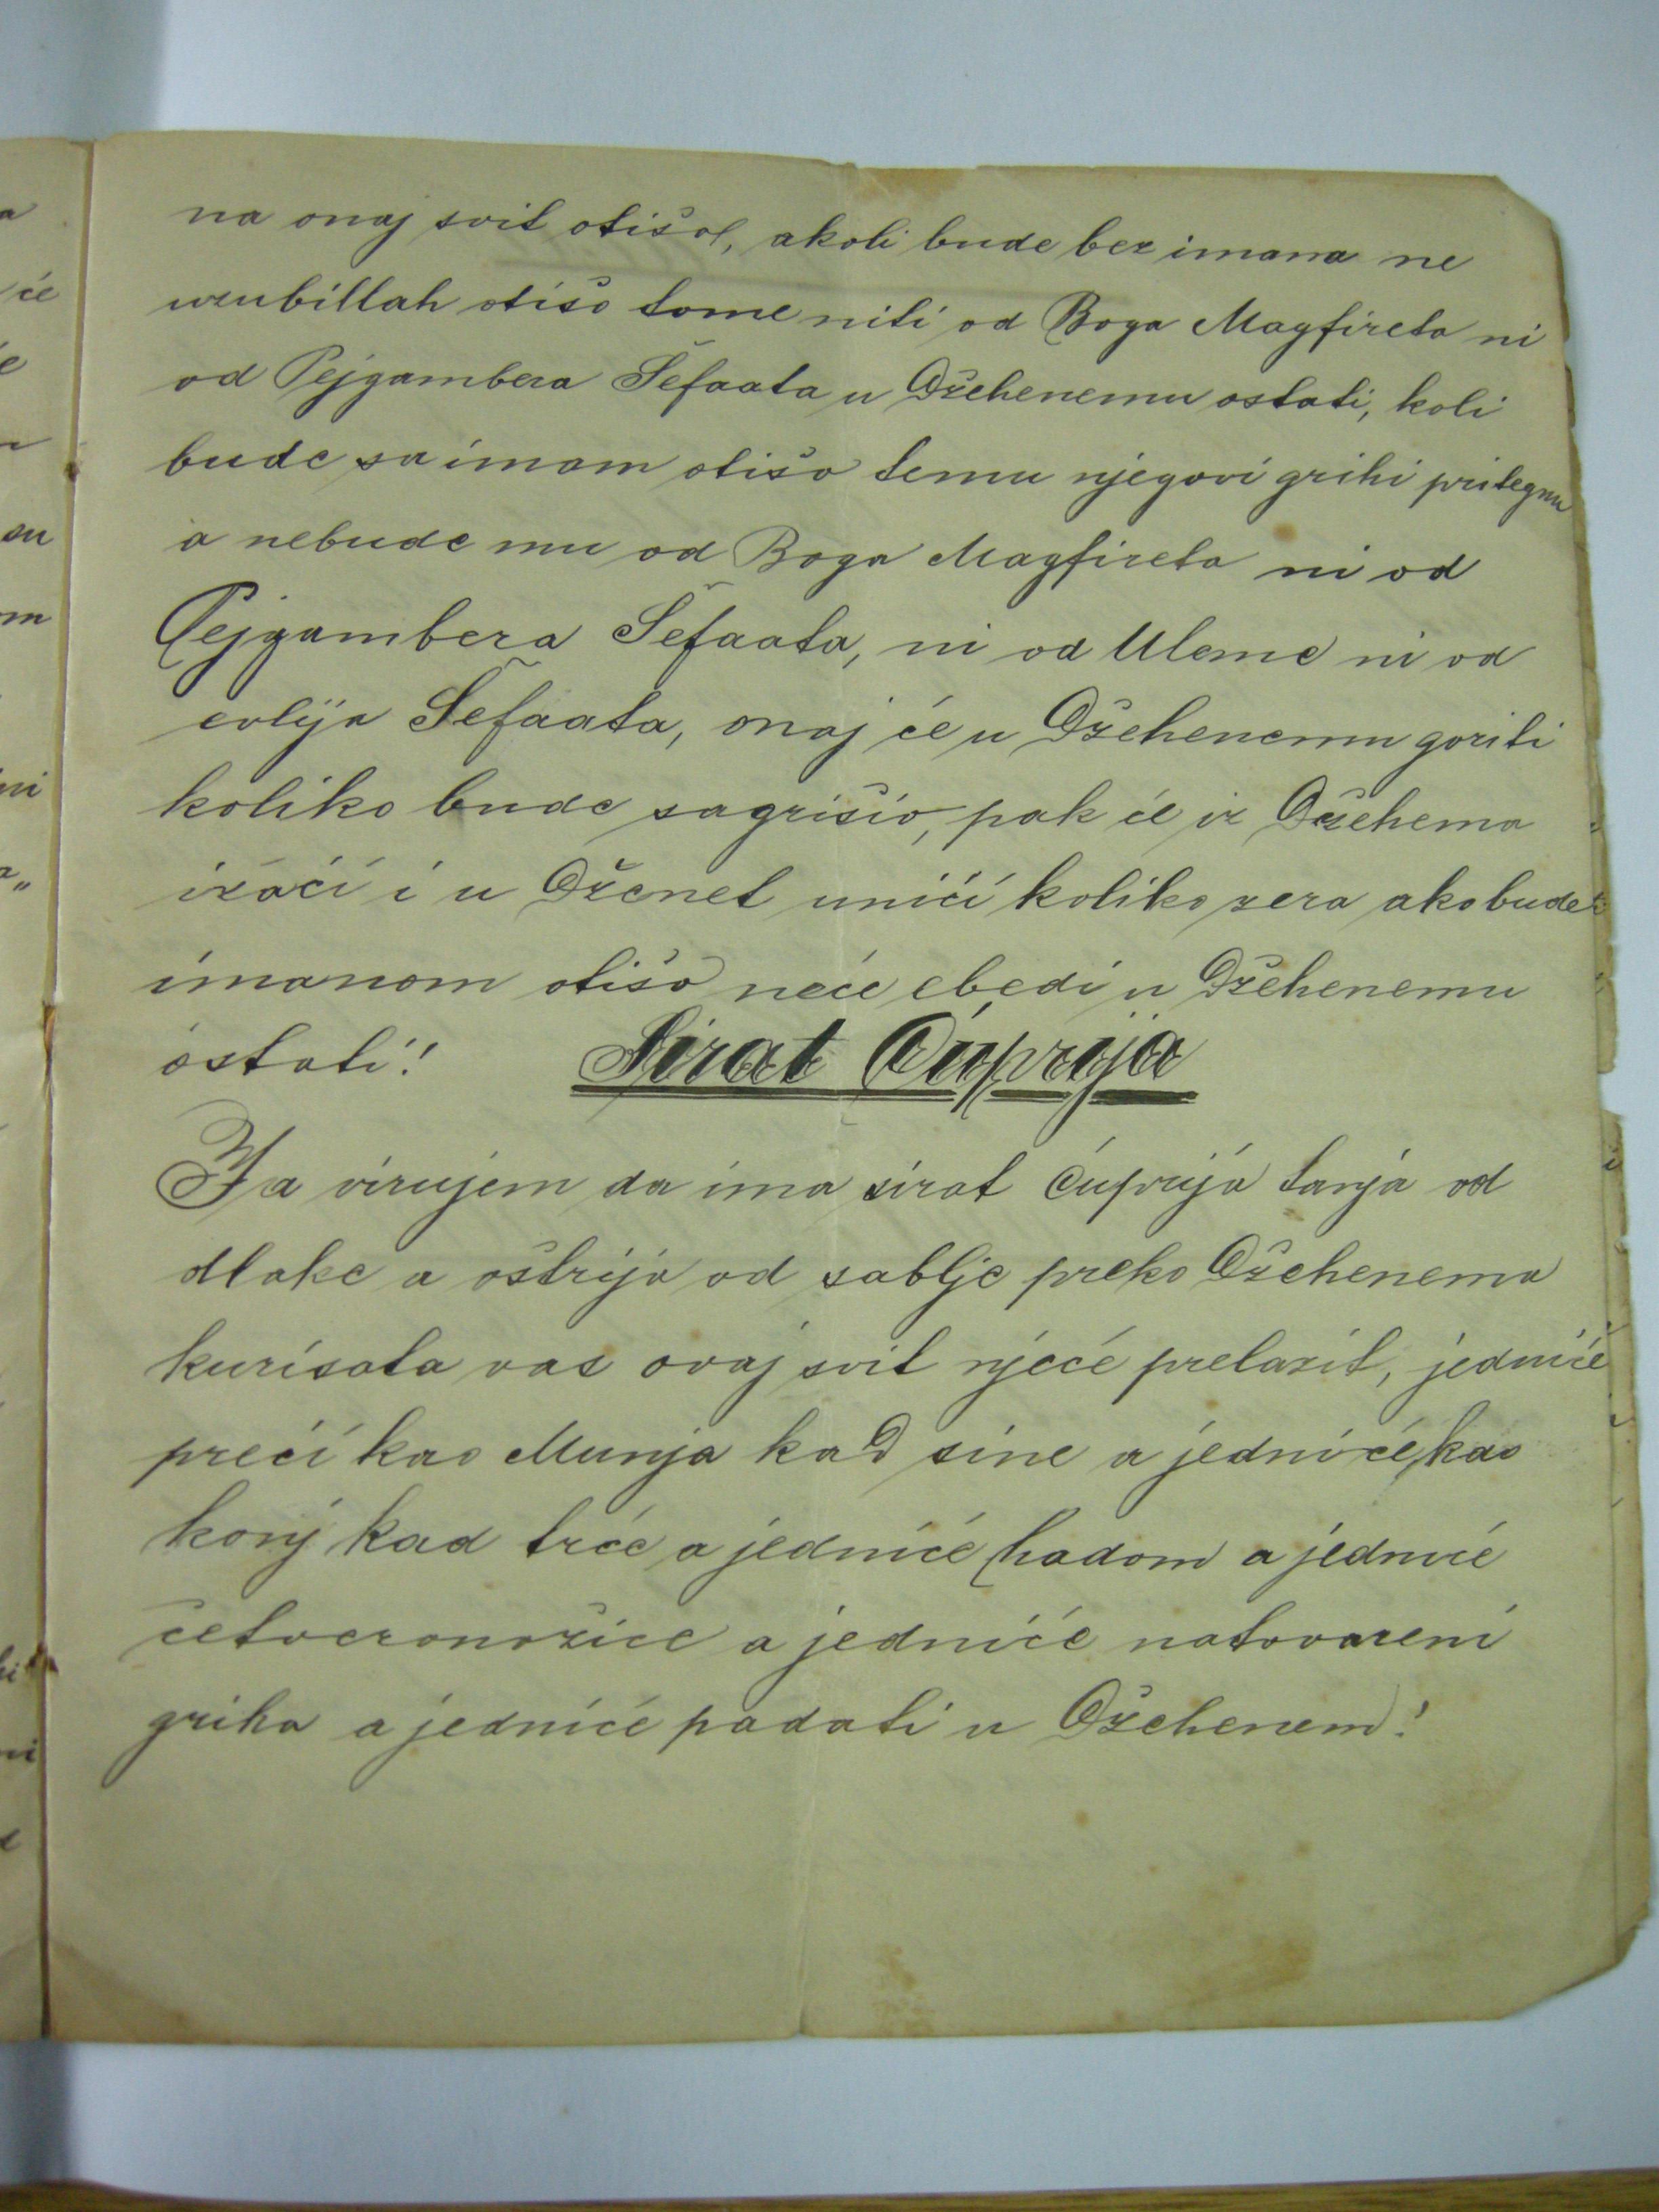 na onaj svit otišo, akoli bude bez imana ne
uzubillah otišo tome niti od Boga Magfireta ni
od Pejgambera Šefaata u Džehenemu ostati, koli
bude sa imam otišo temu njegovi grihi pritegnu
a nebude mu od Boga Magfireta ni od
Pejgambera Šefaata, ni od Uleme ni od
evlija Šefaata, onaj će u Džehenemu goriti
koliko bude sagrišio, pak će iz Džehema
izaći i u Dženet unići koliko zera ako bude
imanom otišo neće ebedi u Džehenemu
ostati!
Sirat Ćuprija
Ja virujem da ima sirat ćuprija tanja od
dlake a oštrija od sablje preko Džehenema
kurisata vas ovaj svit njeće prelazit, jedniće
preći kao Munja kad sine a jedniće, kao
konj kad trče a jedniće hadom a jedniće
četveronožice a jedniće natovareni
griha a jedniće padati u Džehenem!